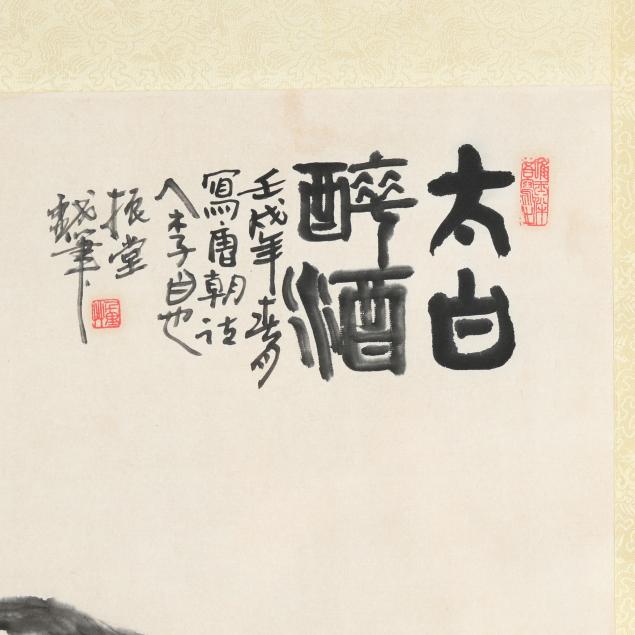 太白
醉酒
壬戌年春月
寫唐朝詩
人李白也
振堂
戲筆